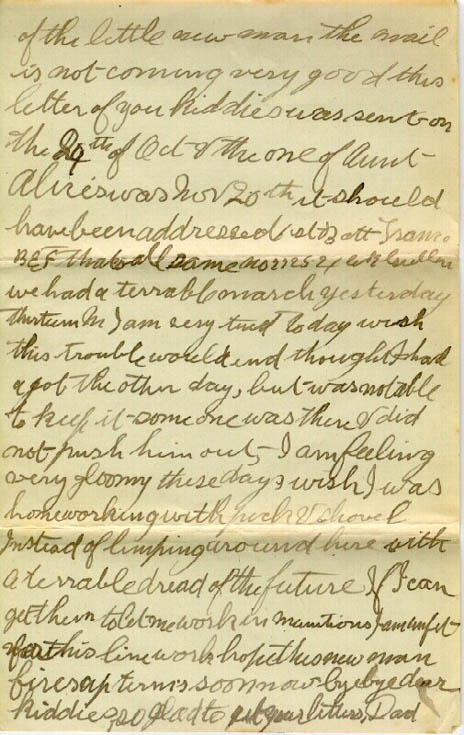 of the little new man the mail
is not coming very good this
letter of you Kiddies was sent on
the 29th of Oct & the one of Aunt
Alice's was Nov 20th it should
have been addressed 1st Batt France
BEF thats all name
we had a terrable march yesterday
thirteen M I am very tired today wish
this trouble would end thought I had
a got the other day, but was not able
to keep it some one was there & did
not push him out, I am feeling
very gloomy these days wish I was
home working with pick & shovel
Instead of limping around here with
a terrable dread of the future If I can
get them to let me work in munitions I am unfit
for this line work hope the new man
fires up terms soon now bye bye dear
Kiddies, so glad to get your letters, Dad